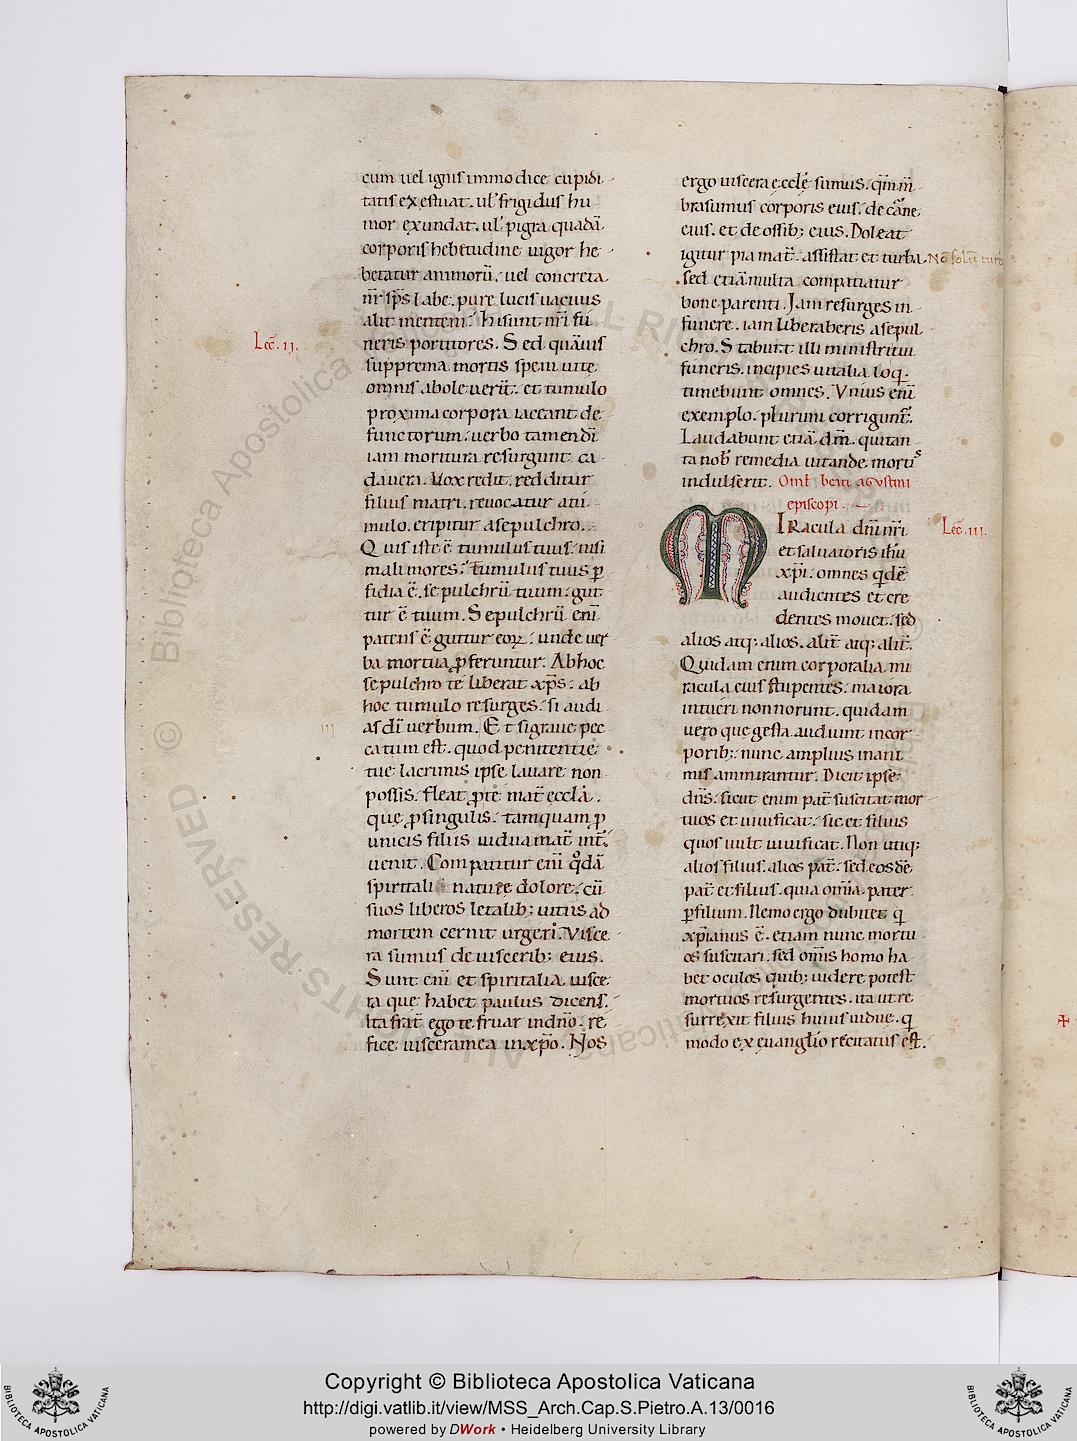 cum uel ignis immodice cupidi
tatis exestuat. ul' frigidus hu
mor exundat. ul' pigra quadā
corporis hebetudine uigor he
betatur animorū. uel concreta
nr̄ sp̄s labe. pure lucis uacuus
alit mentem. hi sunt nr̄i fu
neris portitores. Sed quāuis
Lec̄. II.
supprema mortis spem uite
omnis aboleuerit. et tumulo
proxima corpora iaceant de
functorum. uerbo tamen dī
iam moritura resurgunt ca
dauera. Uox redit. redditur
filius matri. reuocatur a tu
mulo. eripitur a sepulchro.
Quis iste ē tumulus tuus. nisi
mali mores. tumulus tuus p̄
fidia ē. sepulchrū tuum. gut
tur ē tuum. Sepulchrū enī
patens ē guttur eoꝝ. unde uer
ba mortua ꝓferuntur. Ab hoc
sepulchro te liberat xp̄s. ab
hoc tumulo resurges. si audi
III
as dī uerbum. Et si graue pec
catum est. quod penitentie
tue lacrimis ipse lauare non
possis. fleat ꝓ te mat̄ ęccła.
que ꝓ singulis. tamquam ꝓ
unicis filiis uidua mat̄ int̄
uenit. Compatitur enī qdā
spiritali nature dolore. cū
suos liberos letalib; uitiis ad
mortem cernit urgeri. Visce
ra sumus de uiscerib; eius.
Sunt enī et spiritalia uisce
ra que habet paulus dicens.
Ita frat̄ ego te fruar in dn̄o. re
fice uiscera mea in xp̄o. Nos
ergo uiscera ecclē sumus. qm̄ m̄
bra sumus corporis eius. de carne
eius. et de ossib; eius. Doleat
igitur pia mat̄. assistat et turba.
Nō solū turb
sed etiā multa compatiatur
bone parenti. Jam resurges in
funere. iam liberaberis a sepul
chro. Stabunt illi ministri tui
funeris. incipies uitalia loq.
timebunt omnes. Vnius enī
exemplo. plurimi corrigunt̄.
Laudabunt etiā dm̄. qui tan
ta nob̄ remedia uitande mortis
indulserit. Omł beati agustini
episcopi.
MIRacula dn̄i nr̄i
Lec̄. III.
et saluatoris ihu
xp̄i. omnes qdē
audientes et cre
dentes mouet. sed
alios atq; alios. alit̄ atq; alit̄.
Quidam enim corporalia mi
racula eius stupentes. maiora
intueri non norunt. quidam
uero que gesta audiunt in cor
porib;. nunc amplius in ani
mis ammirantur. Dicit ipse
dn̄s. sicut enim pat̄ suscitat mor
tuos et uiuificat. sic et filius
quos uult uiuificat. Non utiq;
alios filius. alios pat̄. sed eosdē
pat̄ et filius. quia om̄ia pater
ꝑ filium. Nemo ergo dubitet q
xp̄ianus ē. etiam nunc mortu
os suscitari. sed om̄is homo ha
bet oculos quib; uidere potest
mortuos resurgentes. ita ut re
surrexit filius huius uidue. q
modo ex euanglio recitatus est.
Copyright © Biblioteca Apostolica Vaticana
http://digi.vatlib.it/view/MSS_Arch.Cap.S.Pietro.A.13/0016
powered by DWork • Heidelberg University Library
BIBLIOTECA APOSTOLICA VATICANA
BIBLIOTECA APOSTOLICA VATICANA